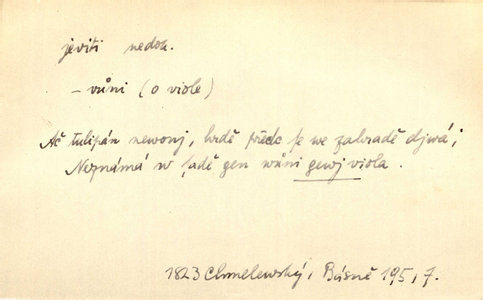 jeviti nedok.
– vůni (o viole)
Ač tulipán newonj, hrdě předc se we zahradě djwá;
Neznámá w sadě gen wůni gewj viola.
1823 Chmelewský, Básně 195, 7.